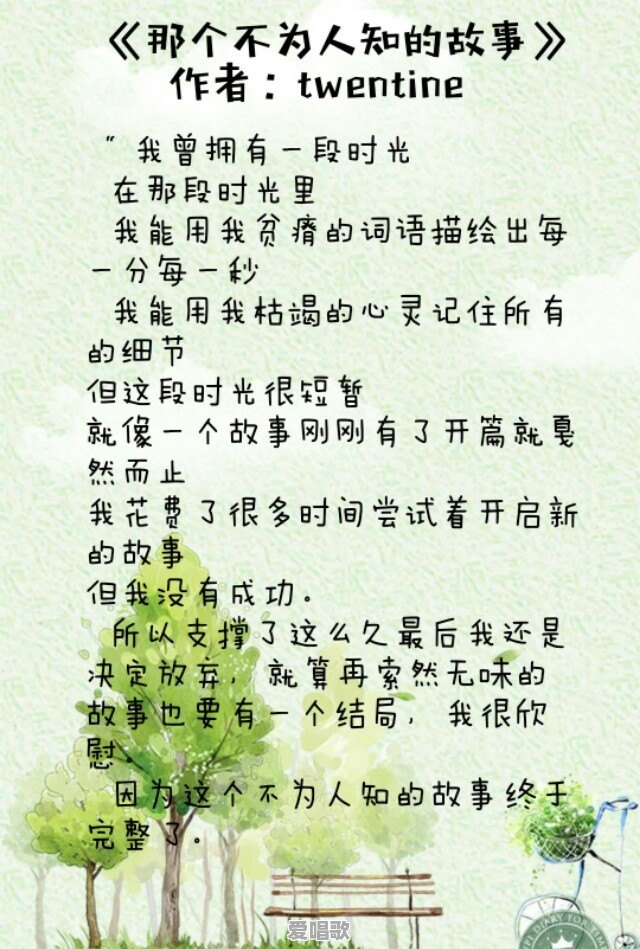 《那个不为人知的故事》
作者：twentine
"我曾拥有一段时光
在那段时光里
我能用我贫瘠的词语描绘出每
一分每一秒
我能用我枯竭的心灵记住所有
的细节
但这段时光很短暂
就像一个故事刚刚有了开篇就戛
然而止
我花费了很多时间尝试着开启新
的故事
但我没有成功。
所以支撑了这么久最后我还是
决定放弃，就算再索然无味的
故事也要有一个结局，我很欣
慰。
因为这个不为人知的故事终于
完整了。
爱唱歌